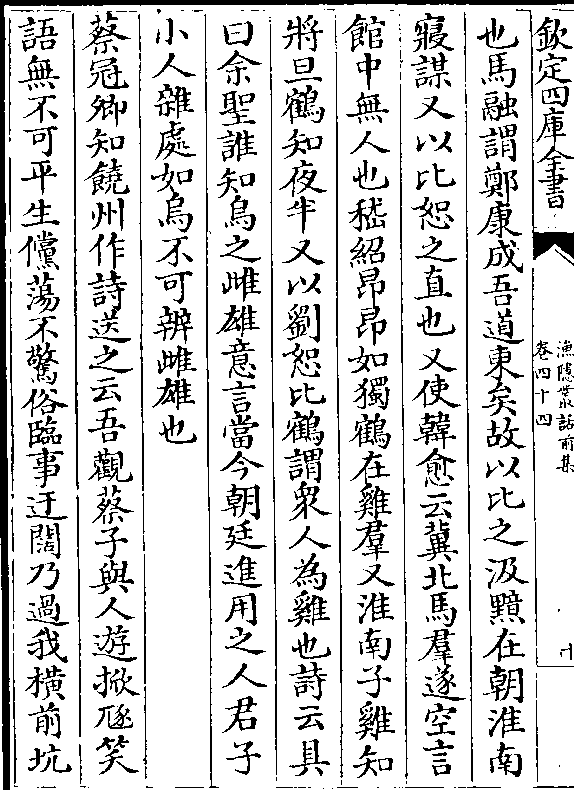 欽定四庫全書
漁隱叢話前集
卷四十四
十
也馬融謂鄭康成吾道東矣故以比之汲黯在朝淮南
寢謀又以比恕之直也又使韓愈云冀北馬羣遂空言
館中無人也嵇紹昂昂如獨鶴在雞羣又淮南子雞知
將旦鶴知夜半又以劉恕比鶴謂衆人為雞也詩云具
曰余聖誰知烏之雌雄意言當今朝廷進用之人君子
小人雜處如烏不可辨雌雄也
蔡冠卿知饒州作詩送之云吾觀蔡子與人遊掀豗笑
語無不可平生儻蕩不驚俗臨事迂闊乃過我橫前坑